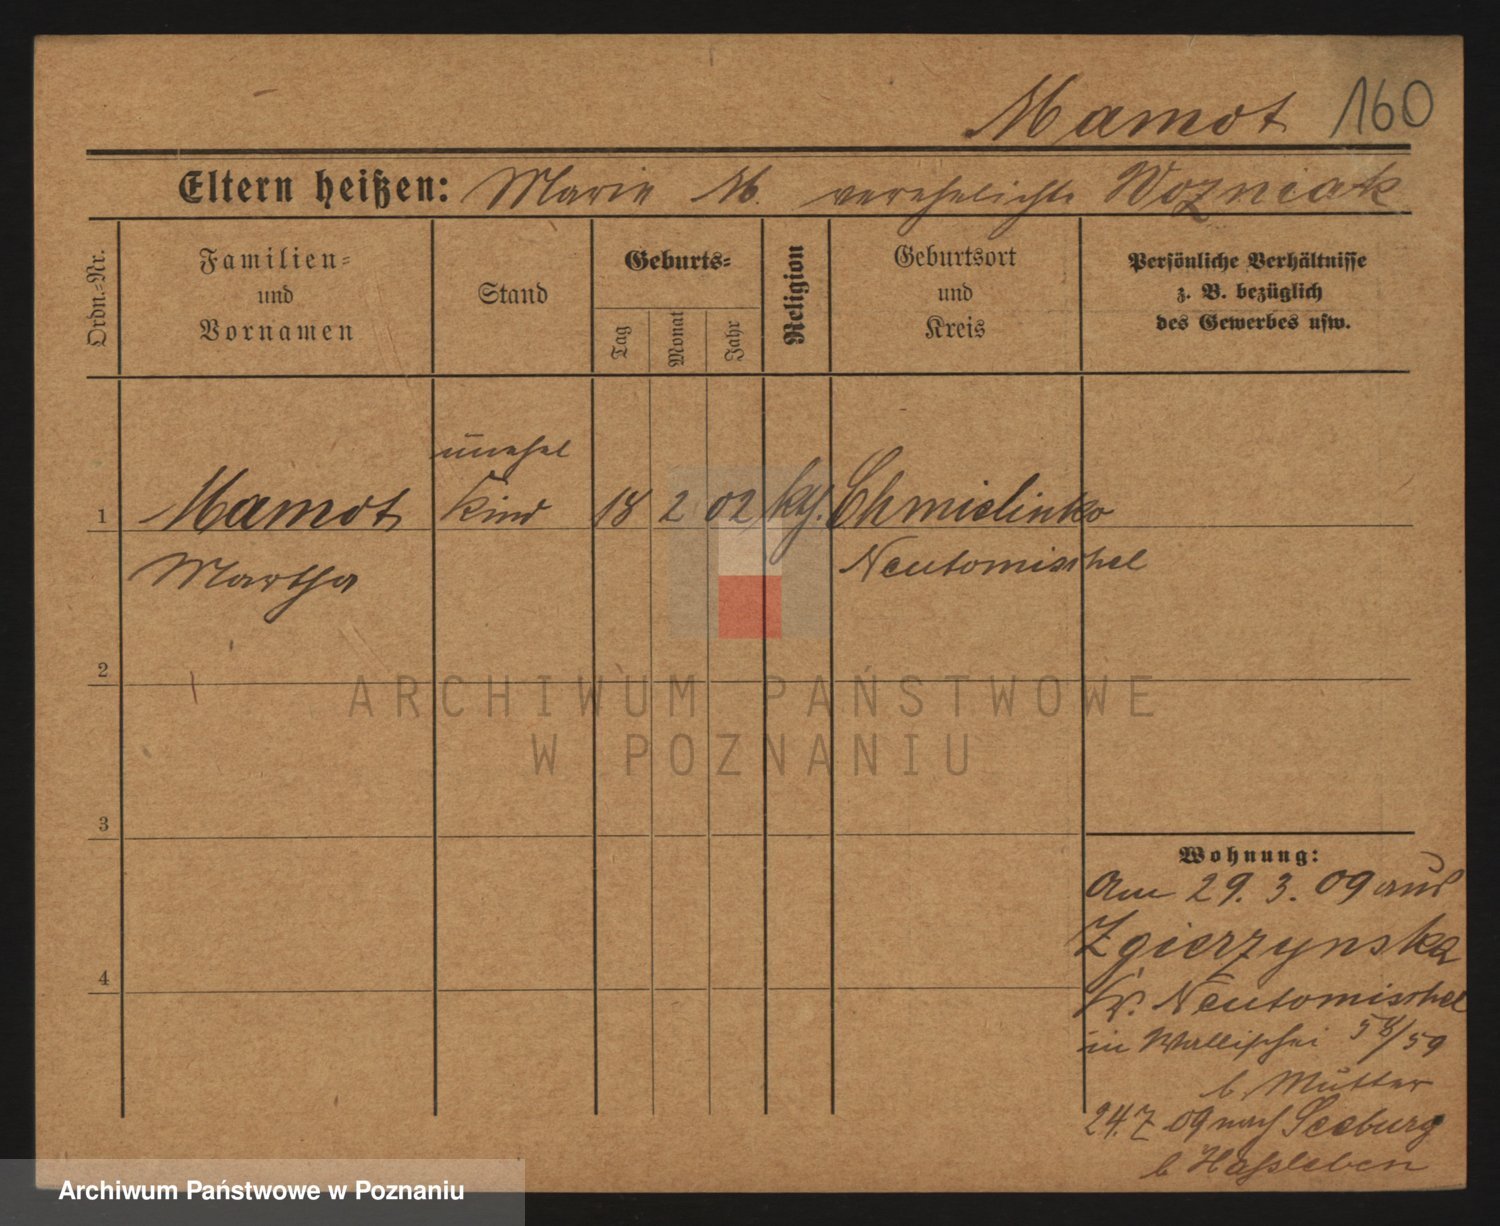 Mamot 160
Eltern heißen: Marie M. verehelichte Wozniak
Ordn.-Nr.
Familien-
und
Vornamen
Stand
Geburts-
Tag
Monat
Jahr
Religion
Geburtsort
und
Kreis
Persönliche Verhältnisse
z. B. bezüglich
des Gewerbes usw.
unehel
1 Mamot Kind 18 2 02 kg. Chmielinko
Martha Neutomischel
2
ARCHIWUM PAŃSTWOWE
W POZNANIU
3
Wohnung:
Am 29. 3. 09 aus
Zgierzynska
Kr. Neutomischel
4
in Wallischei 58/59
b. Mutter
24.7 09 nach Seeburg
b Haßleben
Archiwum Państwowe w Poznaniu